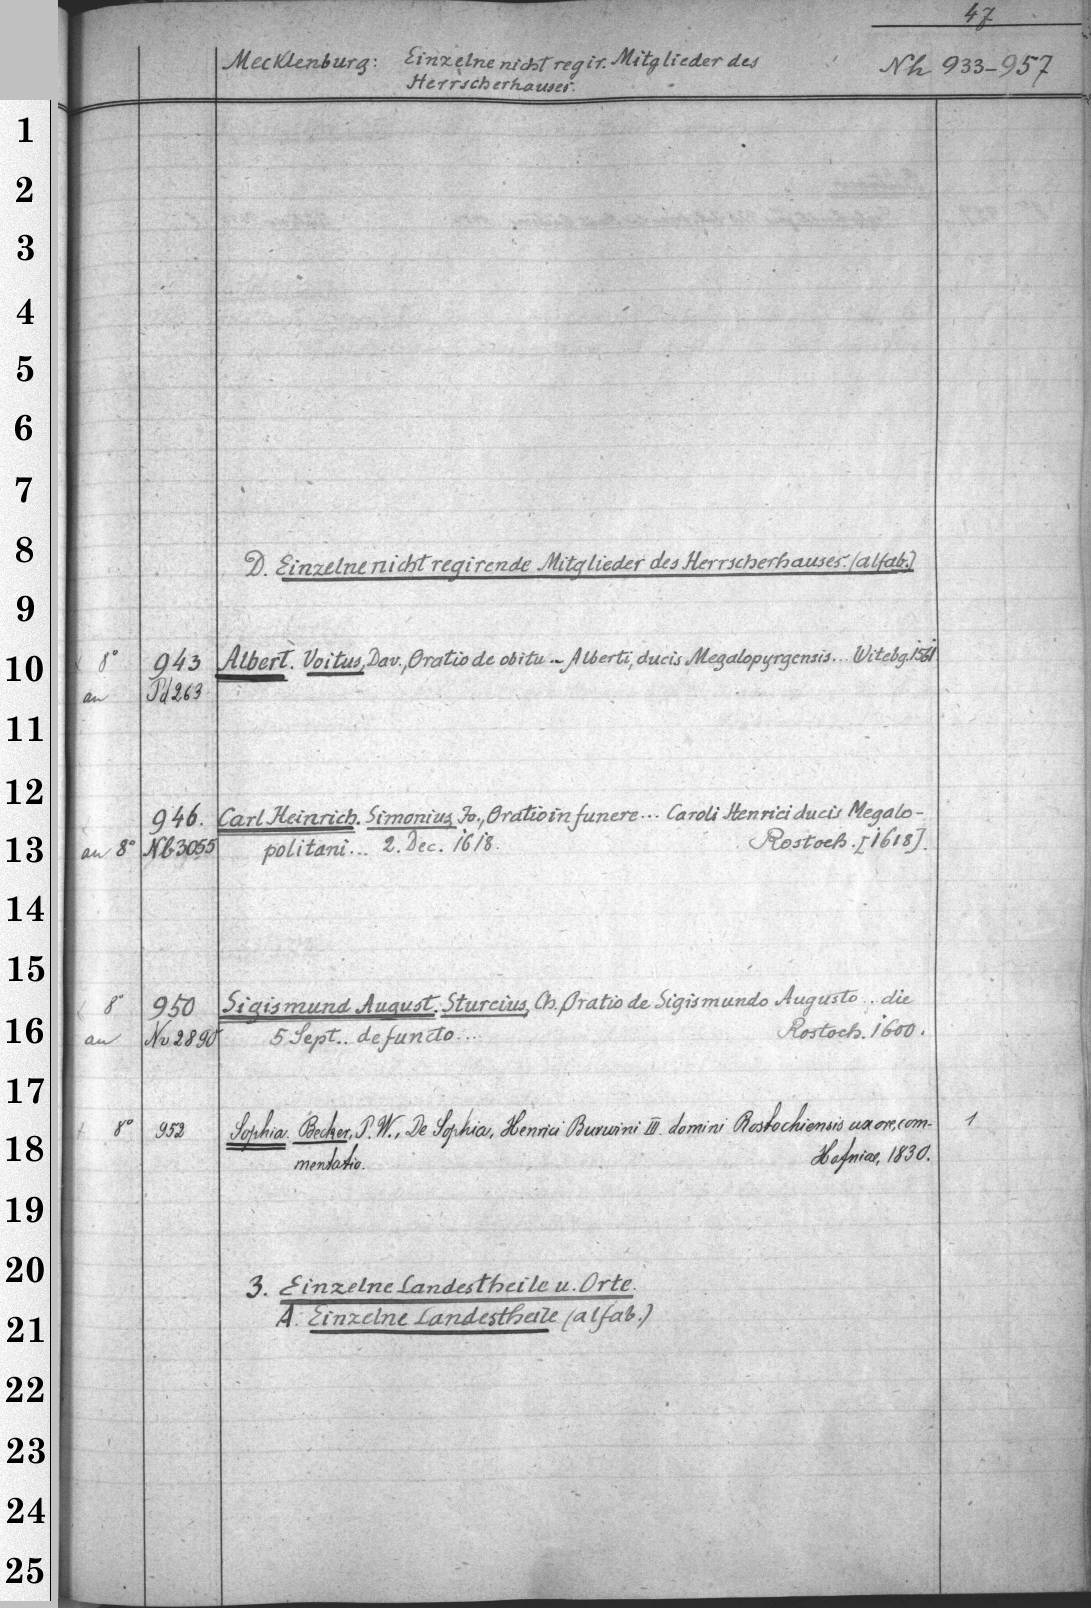 47
Mecklenburg: Einzelne nicht regir. Mitglieder des Herrscherhauses. Nh 933-957
1
2
3
4
5
6
7
8
D. Einzelne nicht regirende Mitglieder des Herrscherhauses. (alfab.)
9
10
8° 943 Albert. Voitus, Dav., Oratio de obitu ... Alberti, ducis Megalopyrgensis... Witebg. 1561
an Pd 263
11
12
946. Carl Heinrich. Simonius, Jo., Oratio in funere... Caroli Henrici ducis Megalo-
13
an 8° Nb 3055 politani... 2. Dec. 1618. Rostoch. [1618].
14
15
8° 950 Sigismund August. Sturcius, Ch. Oratio de Sigismundo Augusto... die
16
an Nv 2890 5 Sept.. defuncto... Rostoch. 1600.
17
8° 952 Sophia. Becker, P. W., De Sophia, Henrici Buruuini III. domini Rostochiensis uxore, com- 1
18
mentatio. Hafniae, 1830.
19
20
3. Einzelne Landestheile u. Orte.
21
A. Einzelne Landestheile (alfab.)
22
23
24
25